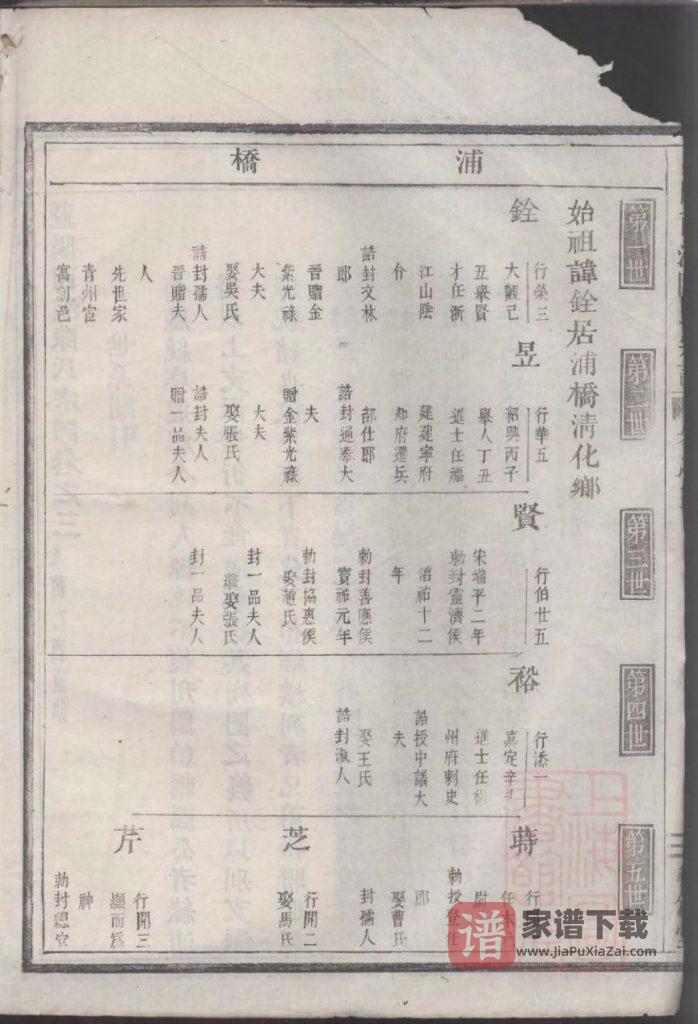 浦橋
第一世
第二世
第三世
第四世
第五世
始祖諱銓居浦橋清化鄉
銓
行榮三
大觀己
丑舉賢
才任浙
江山陰
令
誥封文林
郎
晉贈金
紫光祿
大夫
娶吳氏
誥封孺人
晉贈夫
人
先世家
青州宦
寓創邑
昱
行華五
紹興丙子
舉人丁丑
進士任福
建建寧府
知府遷兵
部仕郎
誥封通奉大
夫
贈金紫光祿
大夫
娶張氏
誥封夫人
贈一品夫人
賢
行伯廿五
宋端平二年
勅封靈濟侯
淳祐十二
年
勅封善應侯
寶祐元年
勅封協惠侯
娶趙氏
封一品夫人
繼娶張氏
封一品夫人
裕
行添一
嘉定辛
進士任
州府刺史
誥授中議大
夫
娶王氏
誥封淑人
蒔
行
任
尉
勅授登仕
郎
娶曹氏
封孺人
芝
行開二
娶馮氏
芹
行開三
顯而爲
神
勅封總管
譜
家谱下载
www.JiaPuXiaZai.com